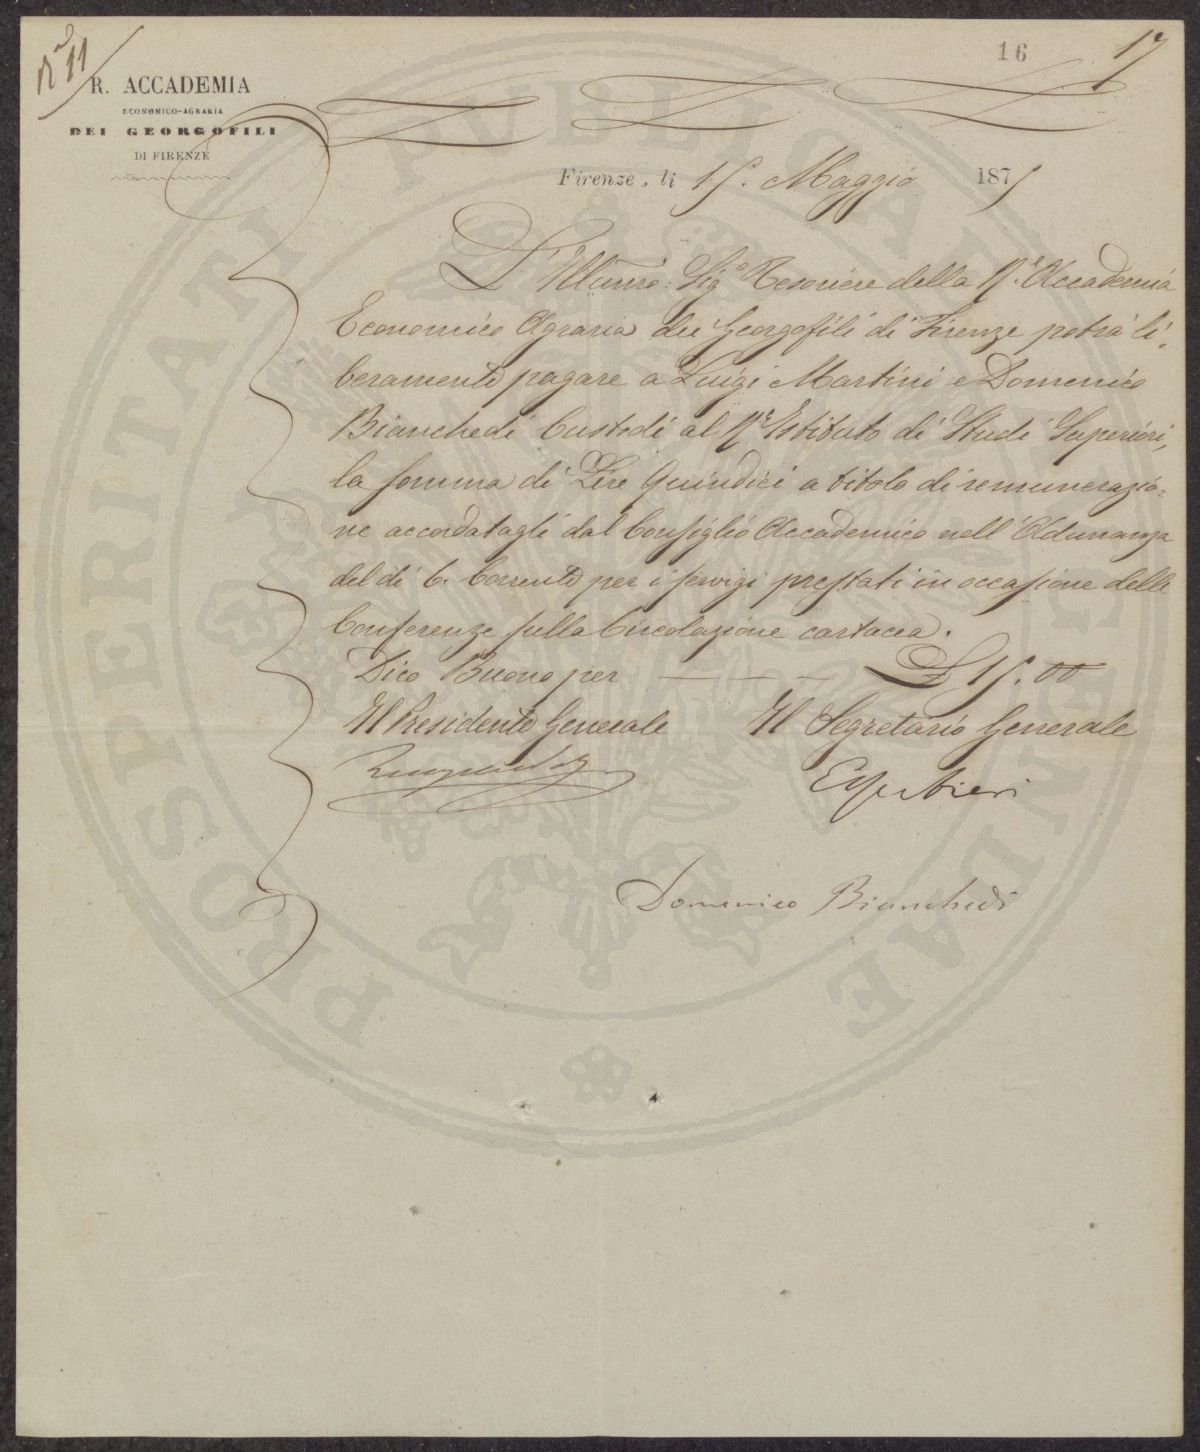 N° 11
16
17
R. ACCADEMIA
ECONOMICO-AGRARIA
DEI GEORGOFILI
DI FIRENZE
Firenze, li 15. Maggio 1875
L'Illumo: Sigo Tesoriere della R.e Accademia
Economico Agraria dei Georgofili di Firenze potrà li-
beramente pagare a Luigi Martini e Domenico
Bianchedi Custodi al Re Istituto di Studi Superiori,
la somma di Lire Quindici a titolo di remunerazio-
ne accordatagli dal Consiglio Accademico nell'Adunanza
del dì 6. Corrente per i servigi prestati in occasione delle
Conferenze sulla Circolazione cartacea.
Dico Buono per — — — L 15.00
Il Presidente Generale Il Segretario Generale
Domenico Bianchedi
PROSPERITATI PUBLICAE AUGENDAE